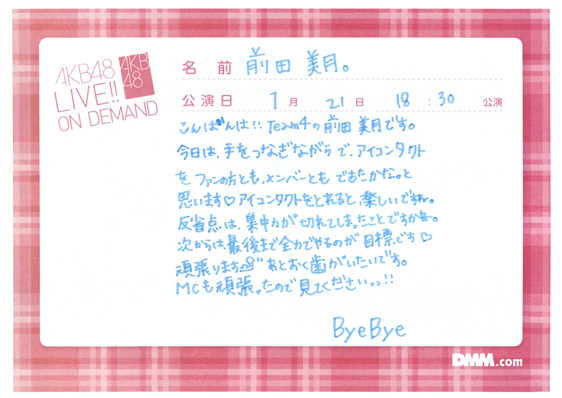 AKB48
LIVE!!
ON DEMAND
AKB
48
名 前 前田 美月。
公演日 1月 21日 18:30 公演
こんばんは!! Team4の前田美月です。
今日は、手をつなぎながらで、アイコンタクト
を ファンの方とも、メンバーとも できたかな。と
思います♡アイコンタクトをとれると、楽しいですね。
反省点は、集中力が切れてしまったことですかね。
次からは、最後まで全力でやるのが目標です♡
頑張ります あとおく歯がいたいです。
MCも頑張ったので見てくださいっっ!!
ByeBye
DMM.com